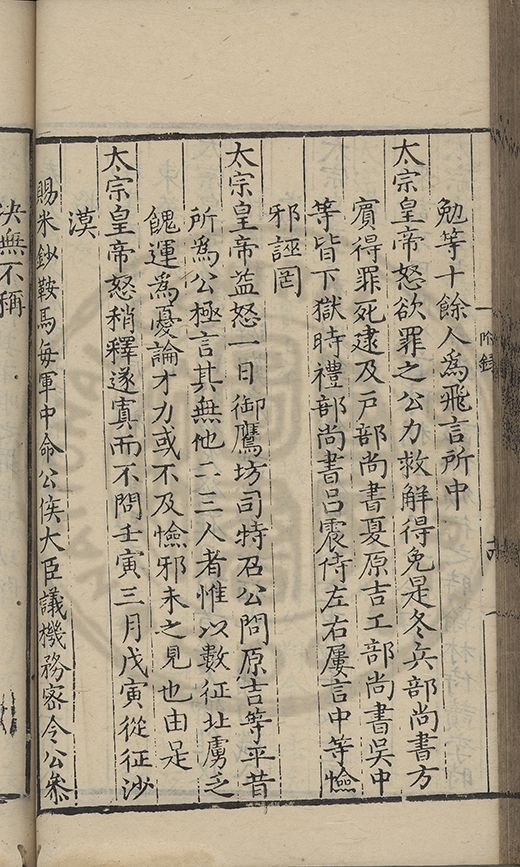 附錄
勉等十餘人為飛言所中
太宗皇帝怒欲罪之公力救解得免是冬兵部尚書方
賓得罪死逮及戶部尚書夏原吉工部尚書吳中
等皆下獄時禮部尚書呂震侍左右屢言中等憸
邪誣罔
太宗皇帝益怒一日御鷹坊司特召公問原吉等平昔
所為公極言其無他二三人者惟以數征北虜乏
餽運為憂論才力或不及憸邪未之見也由是
太宗皇帝怒稍釋遂寘而不問壬寅三月戊寅從征沙
漠
賜米鈔鞍馬每軍中命公侯大臣議機務密令公叅
決無不稱